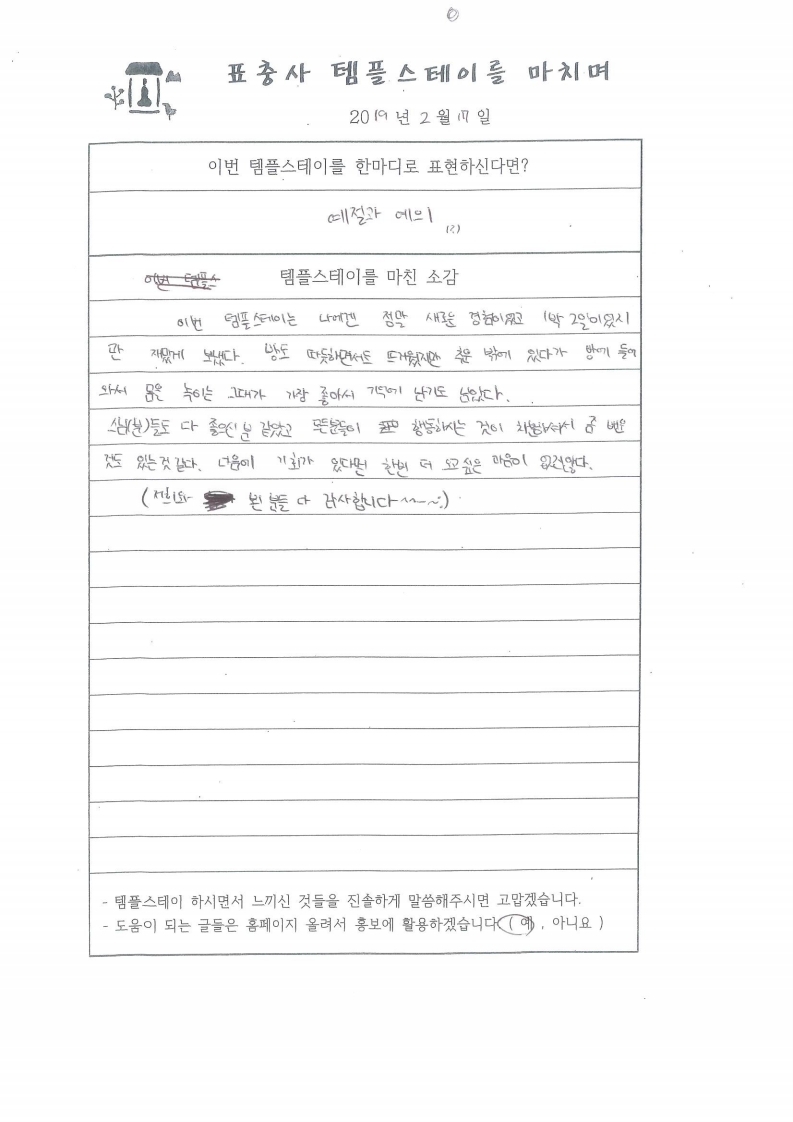 표충사 템플스테이를 마치며
2019년 2월 17일
이번 템플스테이를 한마디로 표현하신다면?
예절과 예의
템플스테이를 마친 소감
이번 템플스테이는 나에겐 정말 새로운 경험이였고 1박 2일이였지
만 재밌게 보냈다. 방도 따듯하면서도 뜨거웠지만 추운 밖에 있다가 방에 들어
와서 몸을 녹이는 그때가 가장 좋아서 기억에 남기도 남았다.
스님(분)들도 다 좋으신 분 같았고 모든분들이 행동하시는 것이 차분하셔서 좀 배운
것도 있는 것 같다. 다음에 기회가 있다면 한번 더 오고 싶은 마음이 없진않다.
(저희와 본 분들 다 감사합니다~~)
- 템플스테이 하시면서 느끼신 것들을 진솔하게 말씀해주시면 고맙겠습니다.
- 도움이 되는 글들은 홈페이지 올려서 홍보에 활용하겠습니다 ( 예 , 아니요 )